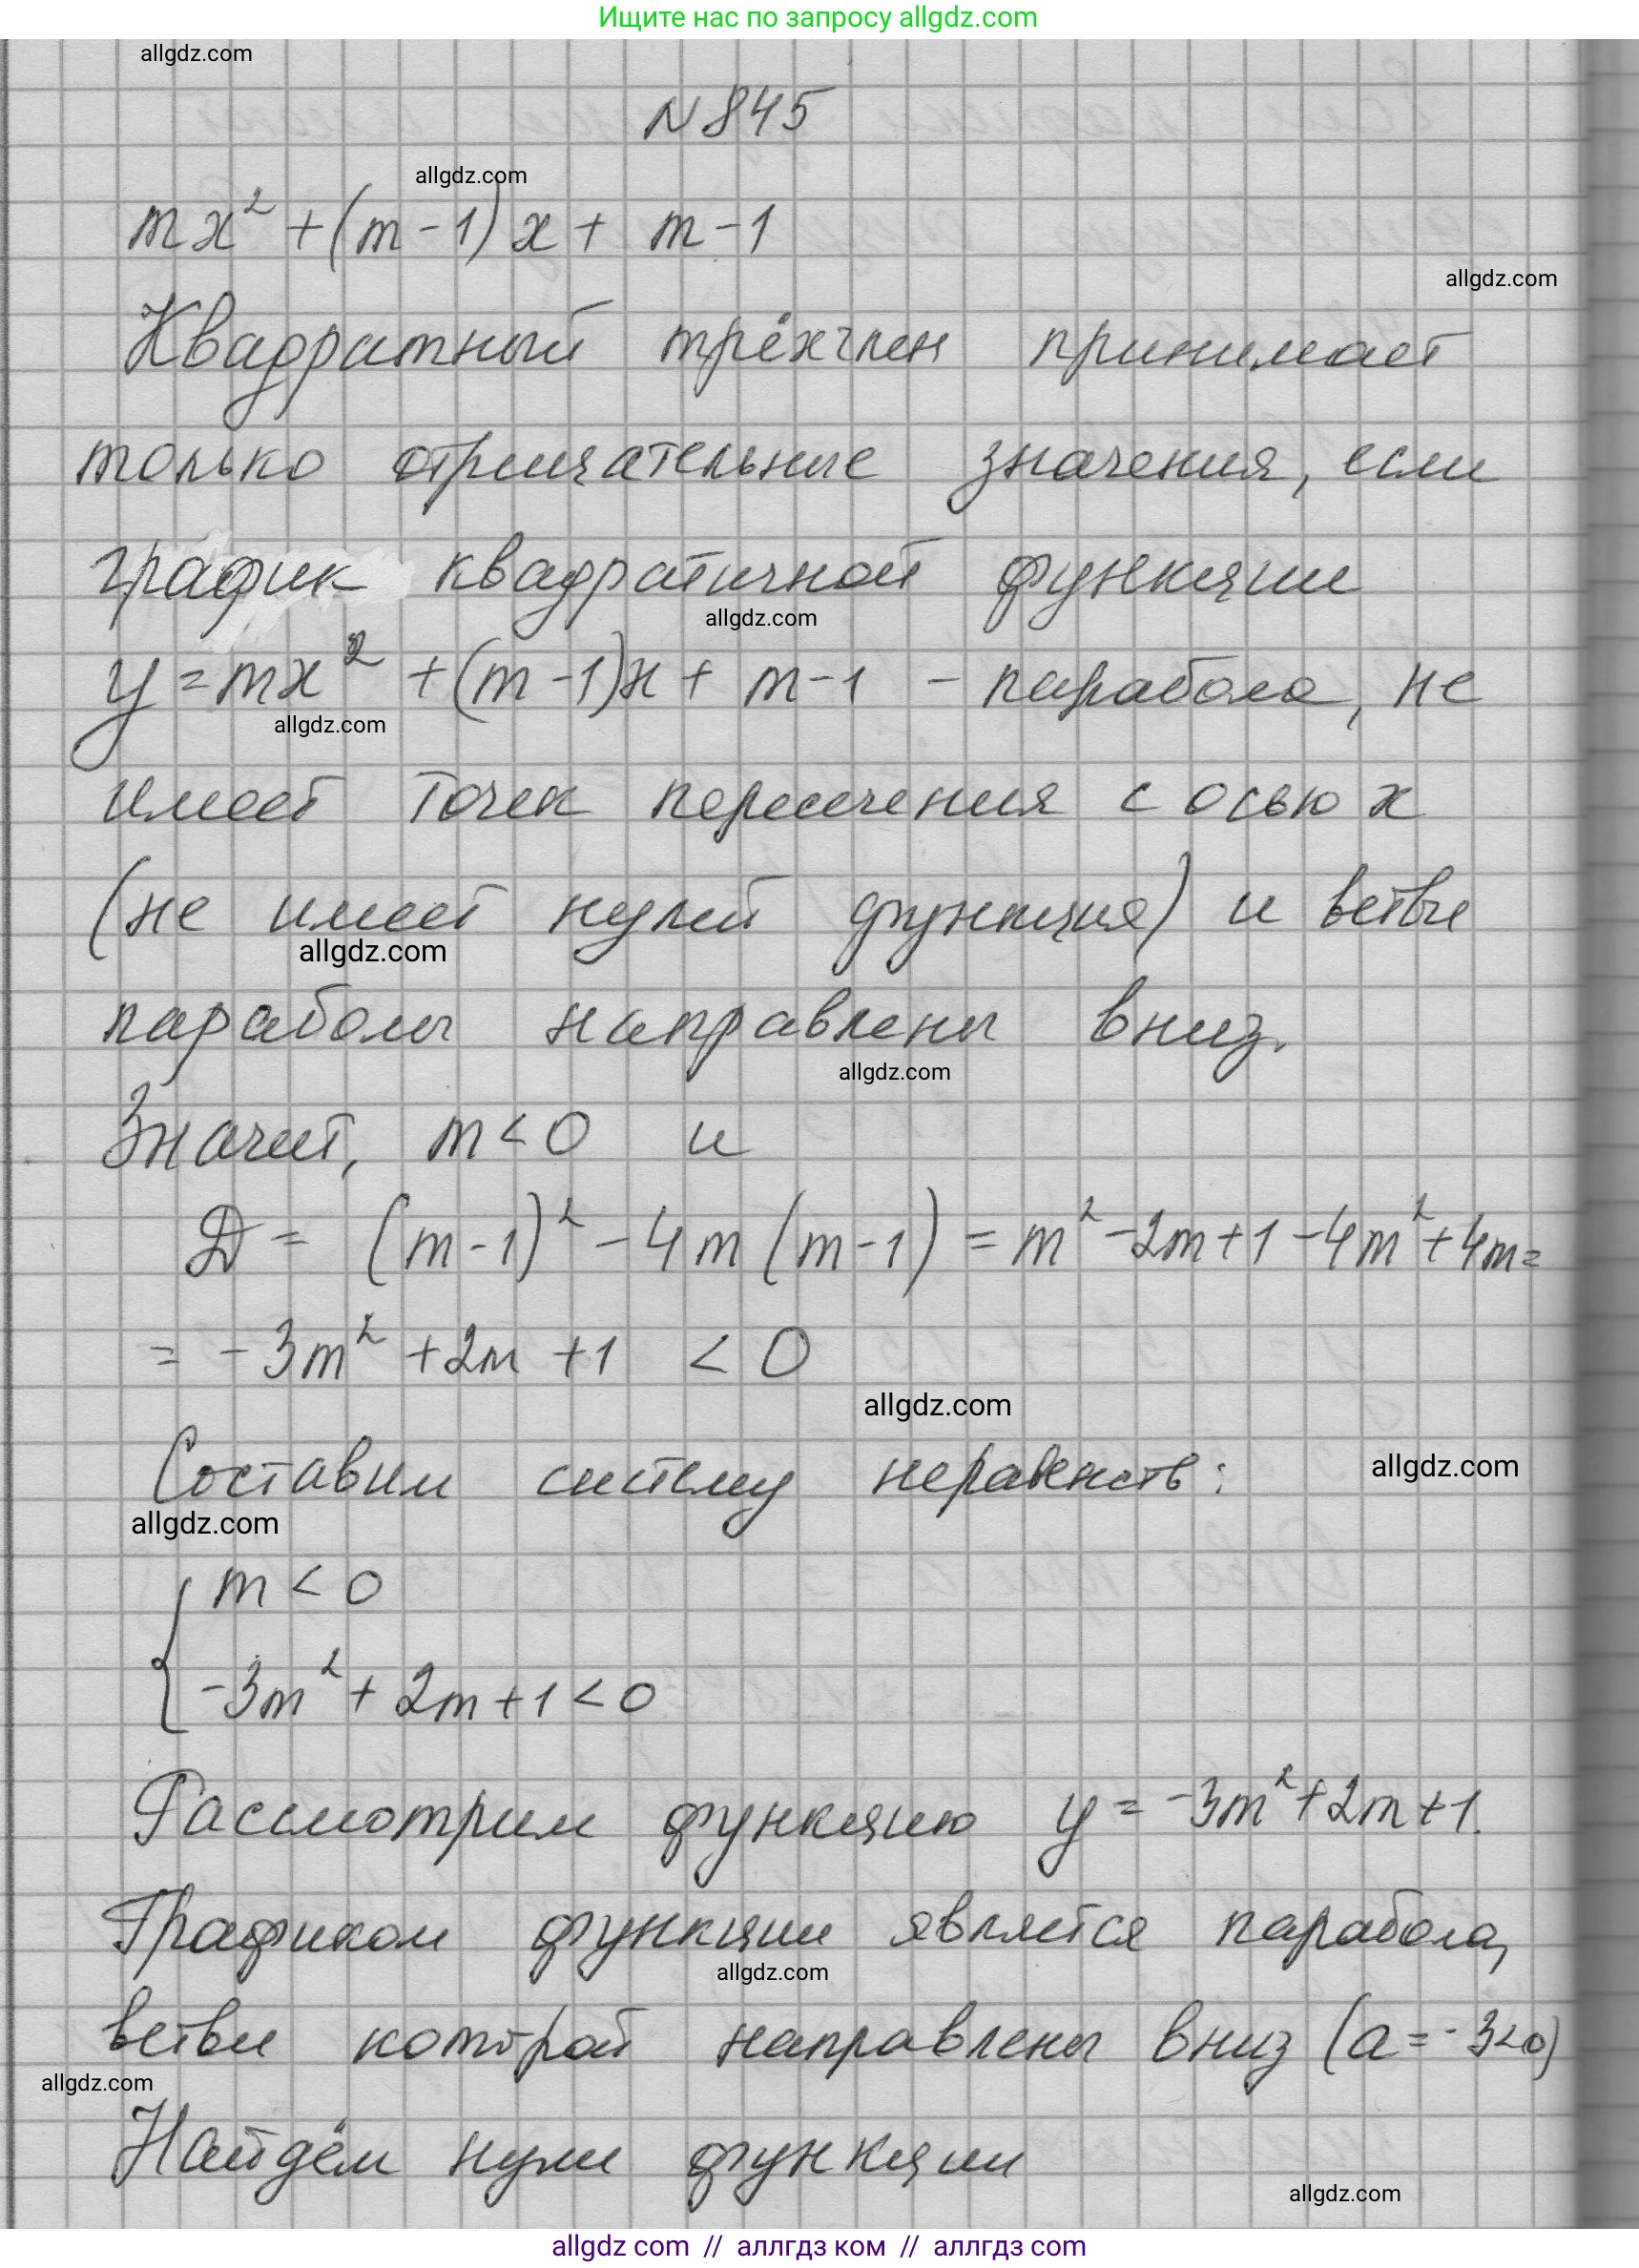 Ищите нас по запросу allgdz.com
allgdz.com
N 845
allgdz.com
mx² + (m - 1) x + m - 1
allgdz.com
Квадратный трёхчлен принимает
только отрицательные значения, если
график квадратичной функции
allgdz.com
y = mx² + (m - 1)x + m - 1 - парабола, не
allgdz.com
имеет точек пересечения с осью x
(не имеет нулей функция) и ветви
allgdz.com
параболы направлены вниз.
allgdz.com
Значит, m < 0 и
D = (m - 1)² - 4m (m - 1) = m² - 2m + 1 - 4m² + 4m =
= - 3m² + 2m + 1 < 0
allgdz.com
Составим систему неравенств:
allgdz.com
allgdz.com
{ m < 0
-3m² + 2m + 1 < 0
Рассмотрим функцию y = -3m² + 2m + 1.
Графиком функции является парабола,
allgdz.com
ветви которой направлены вниз (a = -3<0)
allgdz.com
Найдём нули функции
allgdz.com
allgdz com // аллгдз ком // аллгдз com